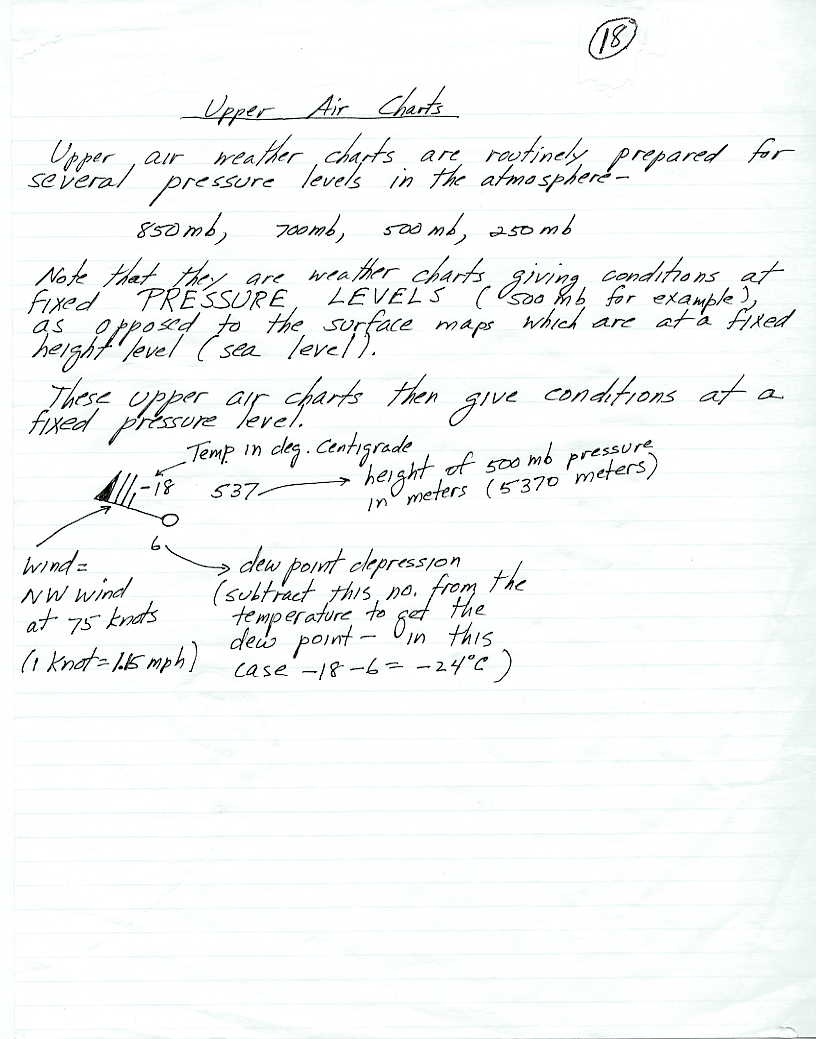 18
Upper Air Charts
Upper air weather charts are routinely prepared for
several pressure levels in the atmosphere-
850mb, 700mb, 500 mb, 250 mb
Note that they are weather charts giving conditions at
fixed PRESSURE LEVELS (500 mb for example),
as opposed to the surface maps which are at a fixed
height level (sea level).
These upper air charts then give conditions at a
fixed pressure level.
Temp. in deg. Centigrade
-18 537
height of 500 mb pressure
in meters (5370 meters)
6
Wind=
NW wind
at 75 knots
(1 knot=1.15 mph)
dew point depression
(subtract this no. from the
temperature to get the
dew point - in this
case -18-6= -24°C)